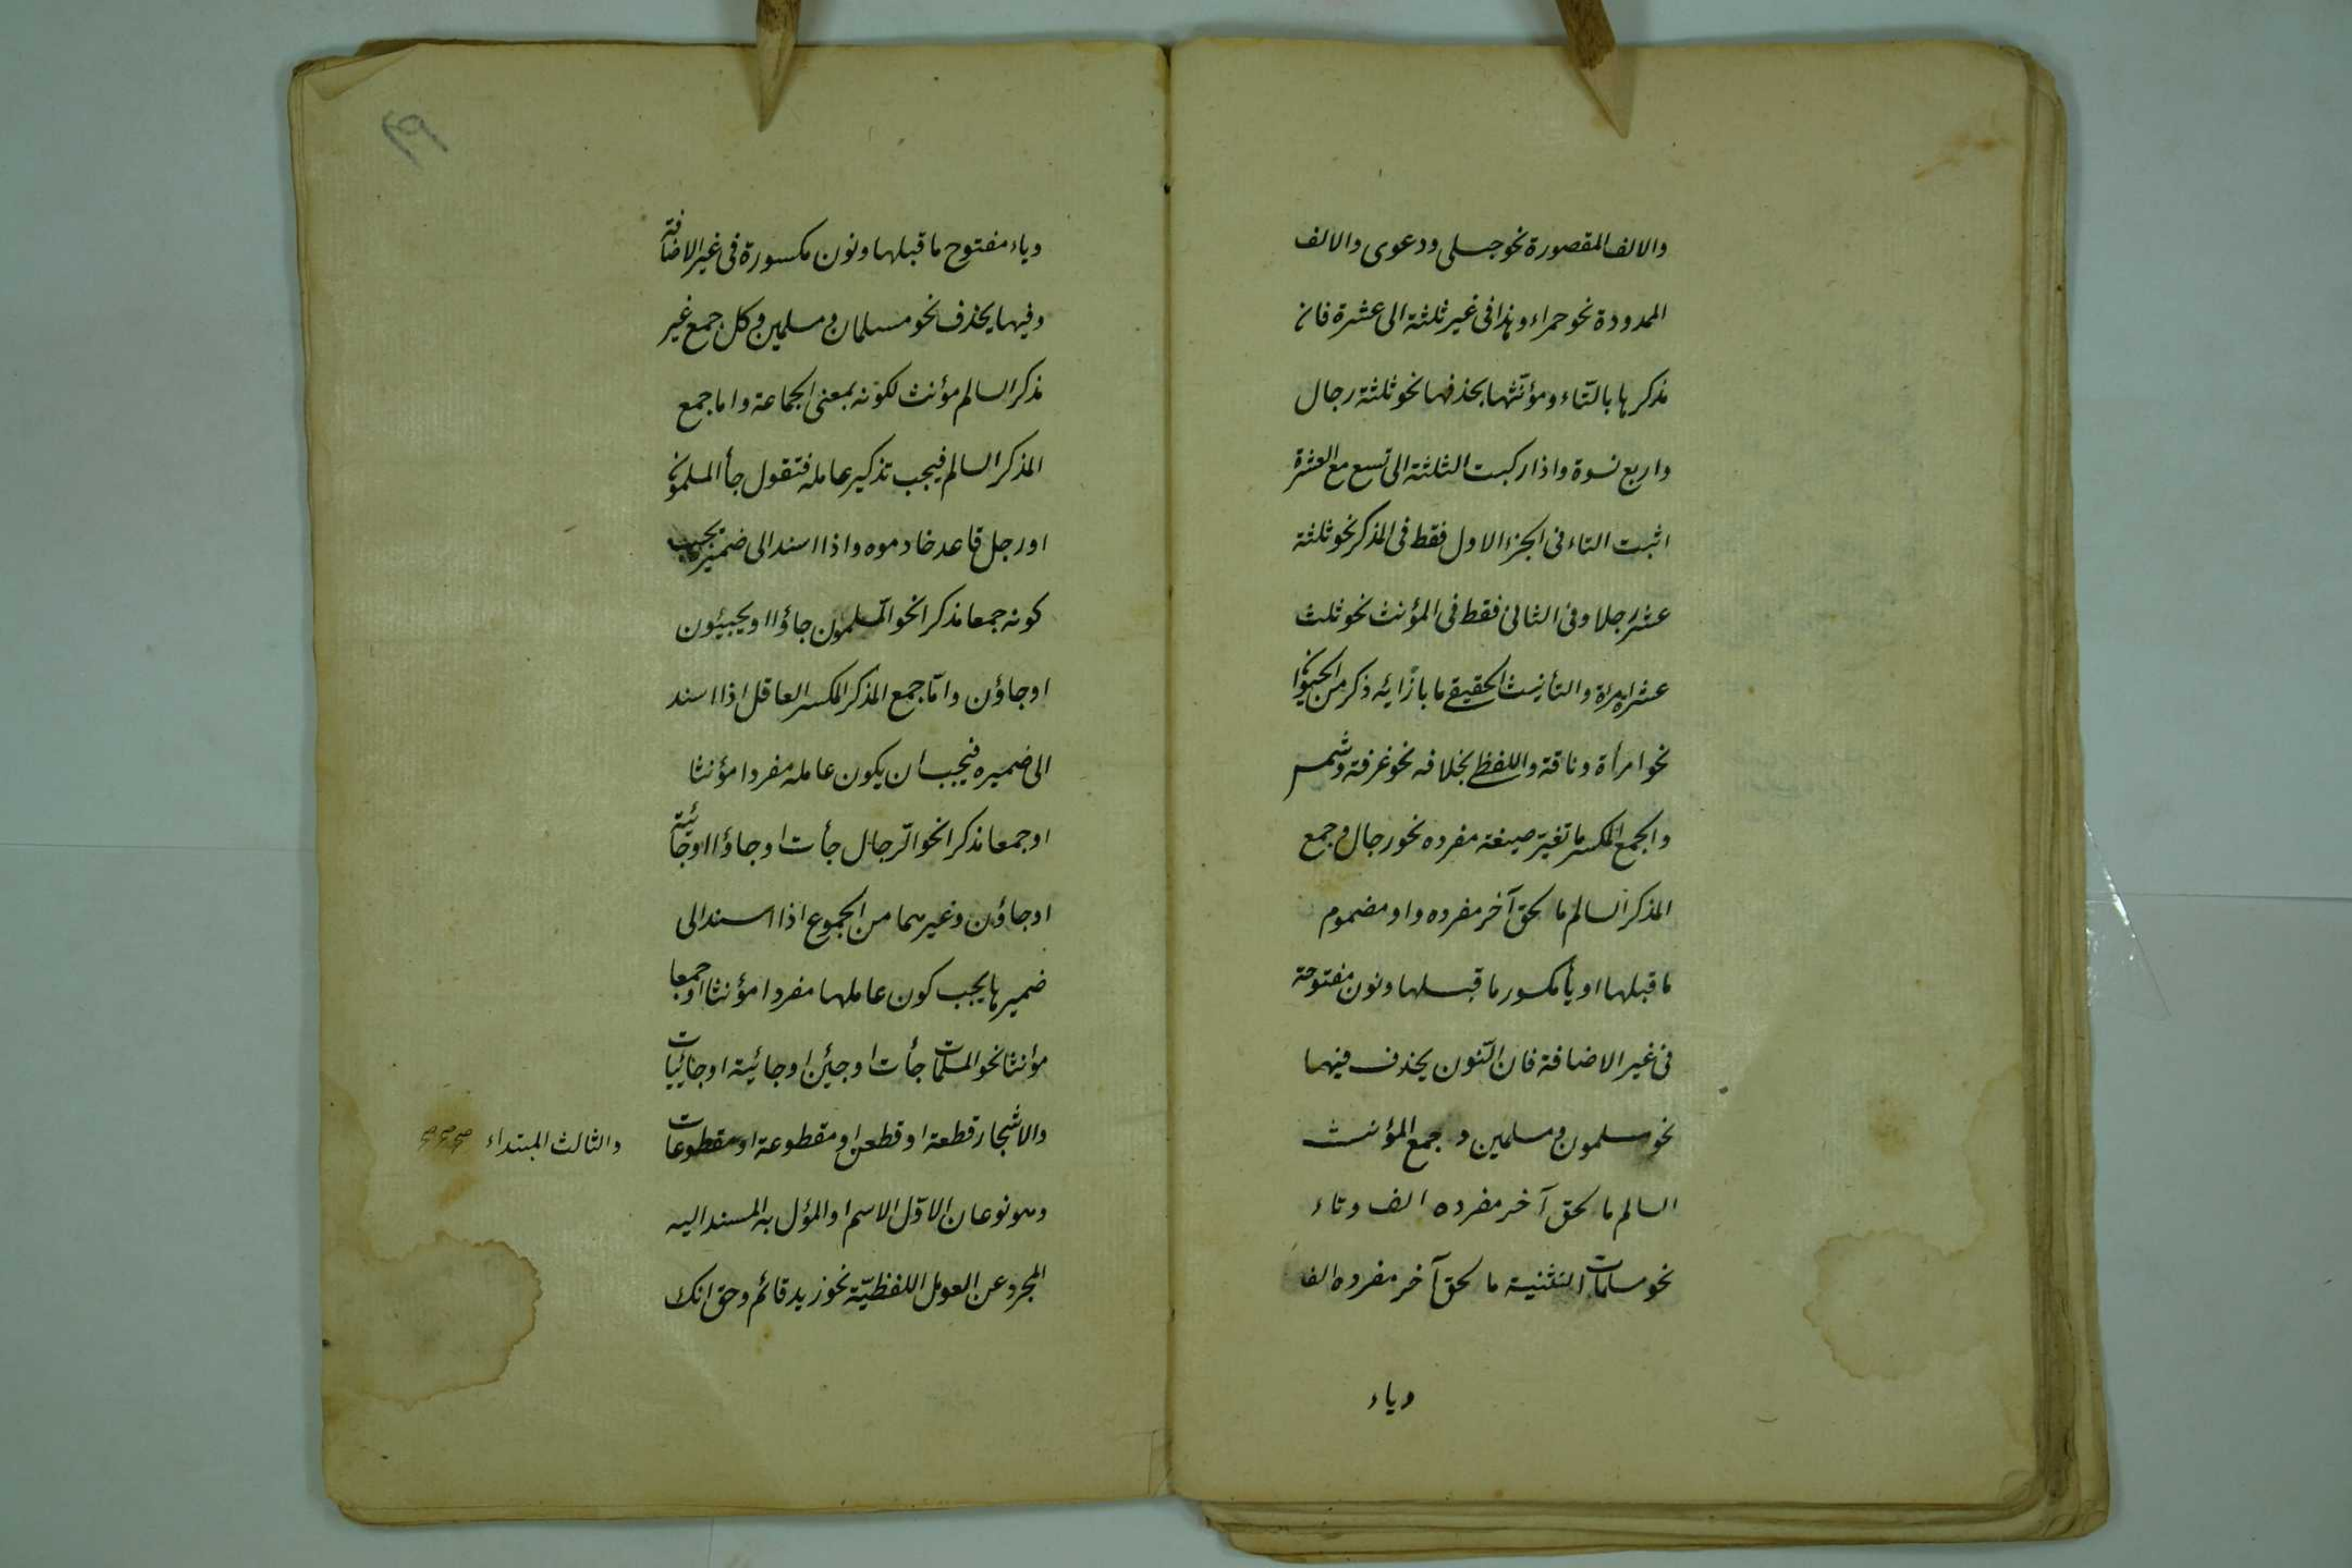 والالف المقصورة نحو حبلى ودعوى والالف
الممدودة نحو حمراء وهذا فى غير ثلثة الى عشرة فان
مذكرها بالتاء ومؤنثها بحذفها نحو ثلثة رجال
واربع نسوة واذا ركبت الثلثة الى تسع مع العشرة
اثبت التاء فى الجزء الاول فقط فى المذكر نحو ثلثة
عشر رجلا وفى الثانى فقط فى المؤنث نحو ثلث
عشرة امرأة والتأنيث الحقيقى ما بازائه ذكر من الحيوان
نحو امرأة وناقة واللفظى بخلافه نحو غرفة وشمس
والجمع المكسر ما تغير صيغة مفرده نحو رجال وجمع
المذكر السالم ما لحق آخر مفرده واو مضموم
ما قبلها او يأ مكسور ما قبلها ونون مفتوحة
فى غير الاضافة فان النّون يحذف فيهما
نحو مسلمون ومسلمين وجمع المؤنث
السالم ما لحق آخر مفرده الف وتاء
نحو مسلمات التثنية ما لحق آخر مفرده الف
وياء
وياء مفتوح ما قبلها ونون مكسورة فى غير الاضافة
وفيها يحذف نحو مسلمان ومسلمين وكل جمع غير
مذكر السالم مؤنث لكونه بمعنى الجماعة واما جمع
المذكر السالم فيجب تذكير عامله فتقول جأ المسلمون
او رجل قاعد خادموه واذا اسند الى ضميره يجب
كونه جمعا مذكرا نحو المسلمون جاؤا او يجيئون
او جاؤن وامّا جمع المذكر المكسر العاقل اذا اسند
الى ضميره فيجب ان يكون عامله مفردا مؤنثا
او جمعا مذكرا نحو الرّجال جأت او جاؤا او جائية
او جاؤن وغيرهما من الجموع اذا اسند الى
ضميرها يجب كون عاملها مفردا مؤنثا او جمعا
مؤنثا نحو المسلمات جأت او جئن او جائية او جائيات
والاشجار قطعة او قطعن او مقطوعة او مقطوعات
والثالث المبتداء
وهو نوعان الاوّل الاسم او المؤل به المسند اليه
المجرد عن العومل اللفظيّة نحو زيد قائم وحق انك
٢٩